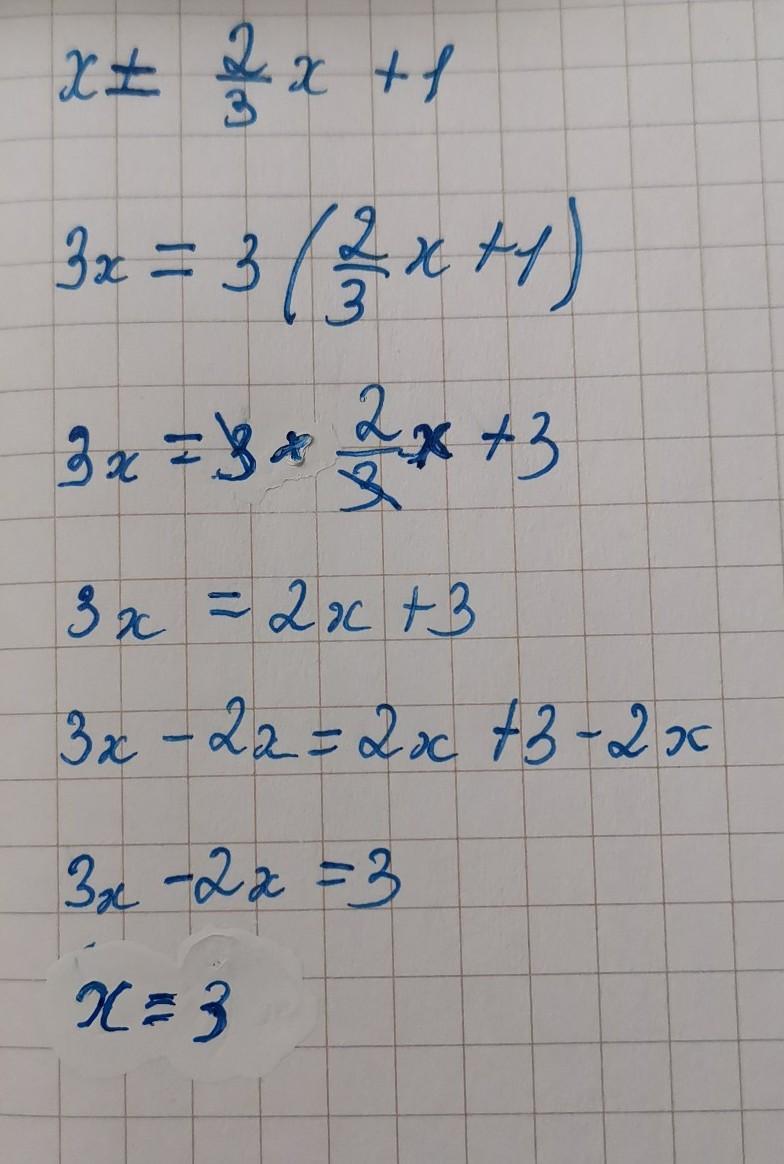 x = 2/3 x + 1
3x = 3 (2/3 x + 1)
3x = 3 * 2/3 x + 3
3x = 2x + 3
3x - 2x = 2x + 3 - 2x
3x - 2x = 3
x = 3